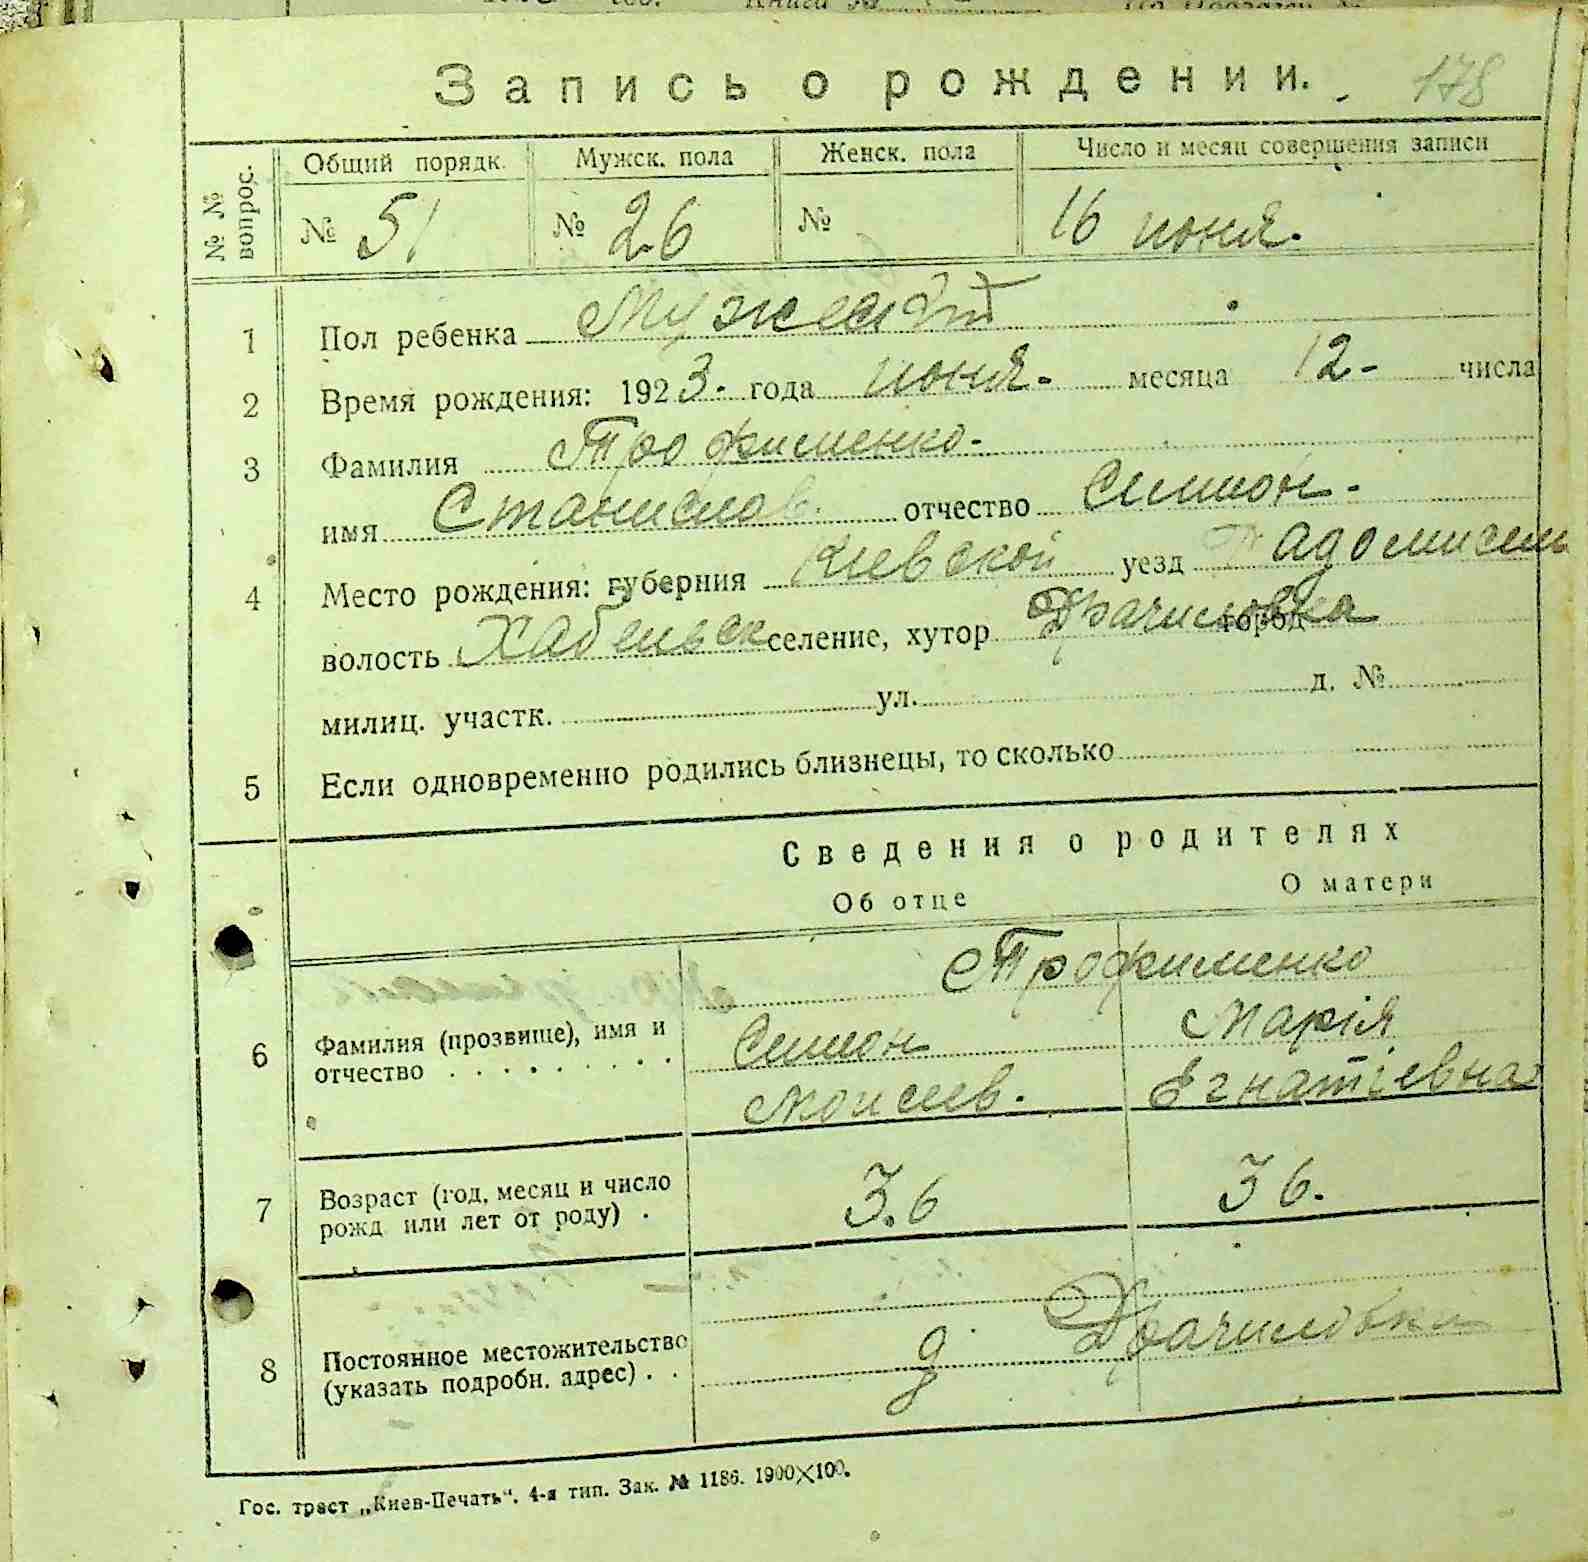 Запись о рождении. 178
№ № вопрос.
Общий порядк. Мужск. пола Женск. пола Число и месяц совершения записи
№ 51 № 26 № 16 июня.
1 Пол ребенка Мужеский
2 Время рождения: 1923. года июня. месяца 12- числа
3 Фамилия Трофименко.
имя Станислав. отчество Симион.
4 Место рождения: губерния Киевской уезд Радомисль
волость Хабеньск селение, хутор город Драчиловка
милиц. участк. ул. д. №
5 Если одновременно родились близнецы, то сколько
Сведения о родителях
Об отце О матери
Трофименко
6 Фамилия (прозвище), имя и Симион Марія
отчество Моисеев. Егнатіевна
7 Возраст (год, месяц и число 3.6 36.
рожд или лет от роду) .
8 Постоянное местожительство д. Драчиловка
(указать подробн. адрес) . .
Гос. трест „Киев-Печать“. 4-я тип. Зак. № 1186. 1900×100.